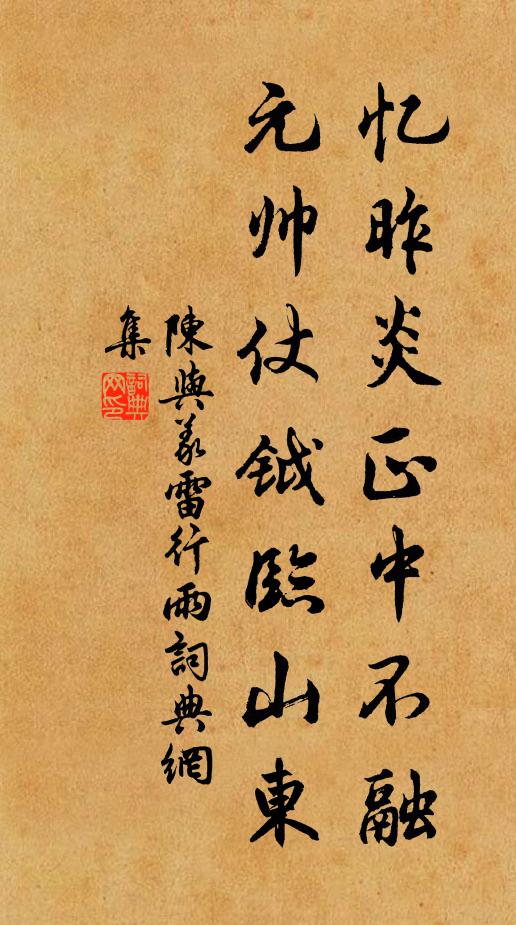 忆昨炎正中不融
元帅仗钺臨山東
陳與義雷行雨詞典網
集
詞典网印